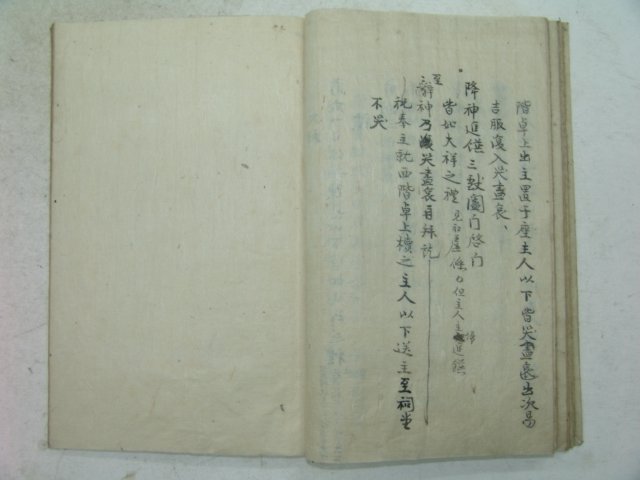 階卓上出主置于座主人以下皆哭盡哀出次易
吉服復入哭盡哀、
降神進饌三獻闔门啓门
皆如大祥之禮 見初虞條 但主人 進饌
至辭神乃 哭盡哀 辞
祝奉主就西階卓上櫝之主人以下送主至祠堂
不哭